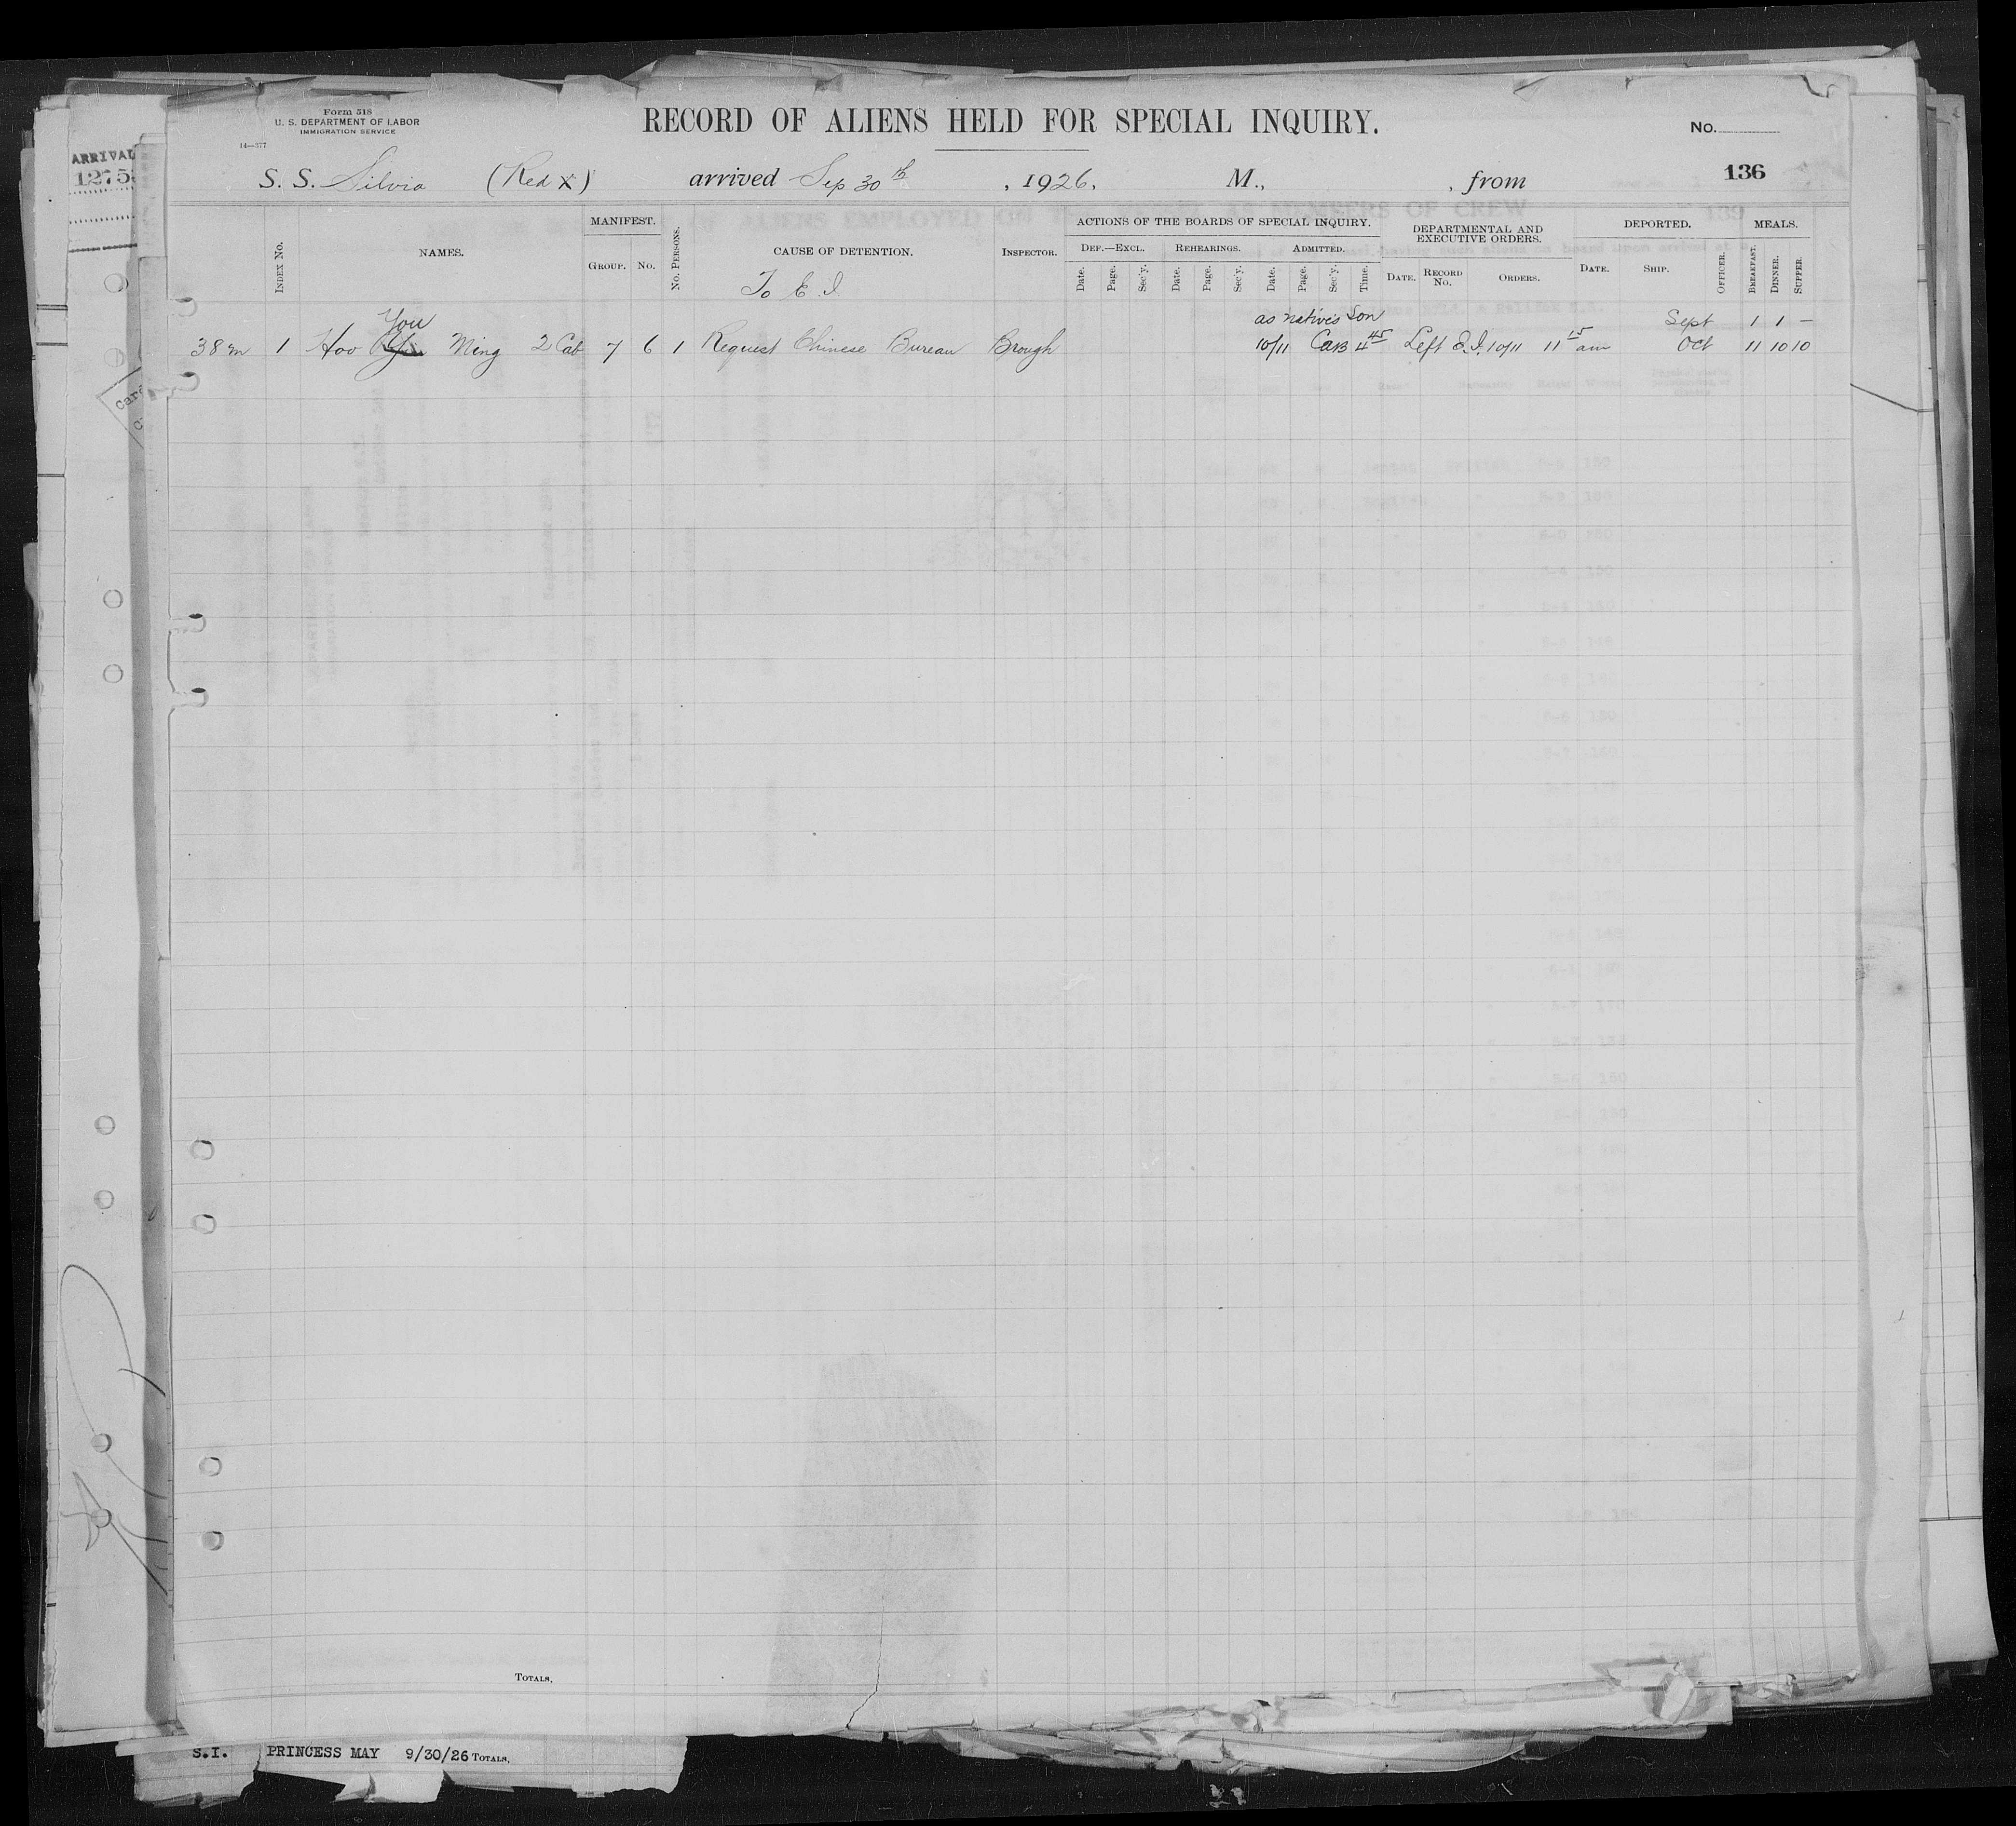 Form 518
U. S. DEPARTMENT OF LABOR
IMMIGRATION SERVICE
14—377
RECORD OF ALIENS HELD FOR SPECIAL INQUIRY.
No.
136
S. S. Silvia (Red X) arrived Sep 30th, 1926, M., , from
INDEX No.
NAMES.
MANIFEST.
GROUP. No.
No. PERSONS.
CAUSE OF DETENTION.
To E. I.
INSPECTOR.
ACTIONS OF THE BOARDS OF SPECIAL INQUIRY.
DEF.—EXCL. REHEARINGS. ADMITTED.
Date. Page. Sec'y. Date. Page. Sec'y. Date. Page. Sec'y. Time.
DEPARTMENTAL AND EXECUTIVE ORDERS.
DATE. RECORD No. ORDERS.
DEPORTED.
DATE. SHIP. OFFICER.
MEALS.
BREAKFAST. DINNER. SUPPER.
You as native's son Sept 1 1 —
38 m 1 Hoo Ming 2 Cab 7 6 1 Request Chinese Bureau Brough 10/11 CAB 4 45 Left E. I. 10/11 11 15 am Oct 11 10 10
TOTALS.
ARRIVAL
1275
Card
S.I. PRINCESS MAY 9/30/26 TOTALS.